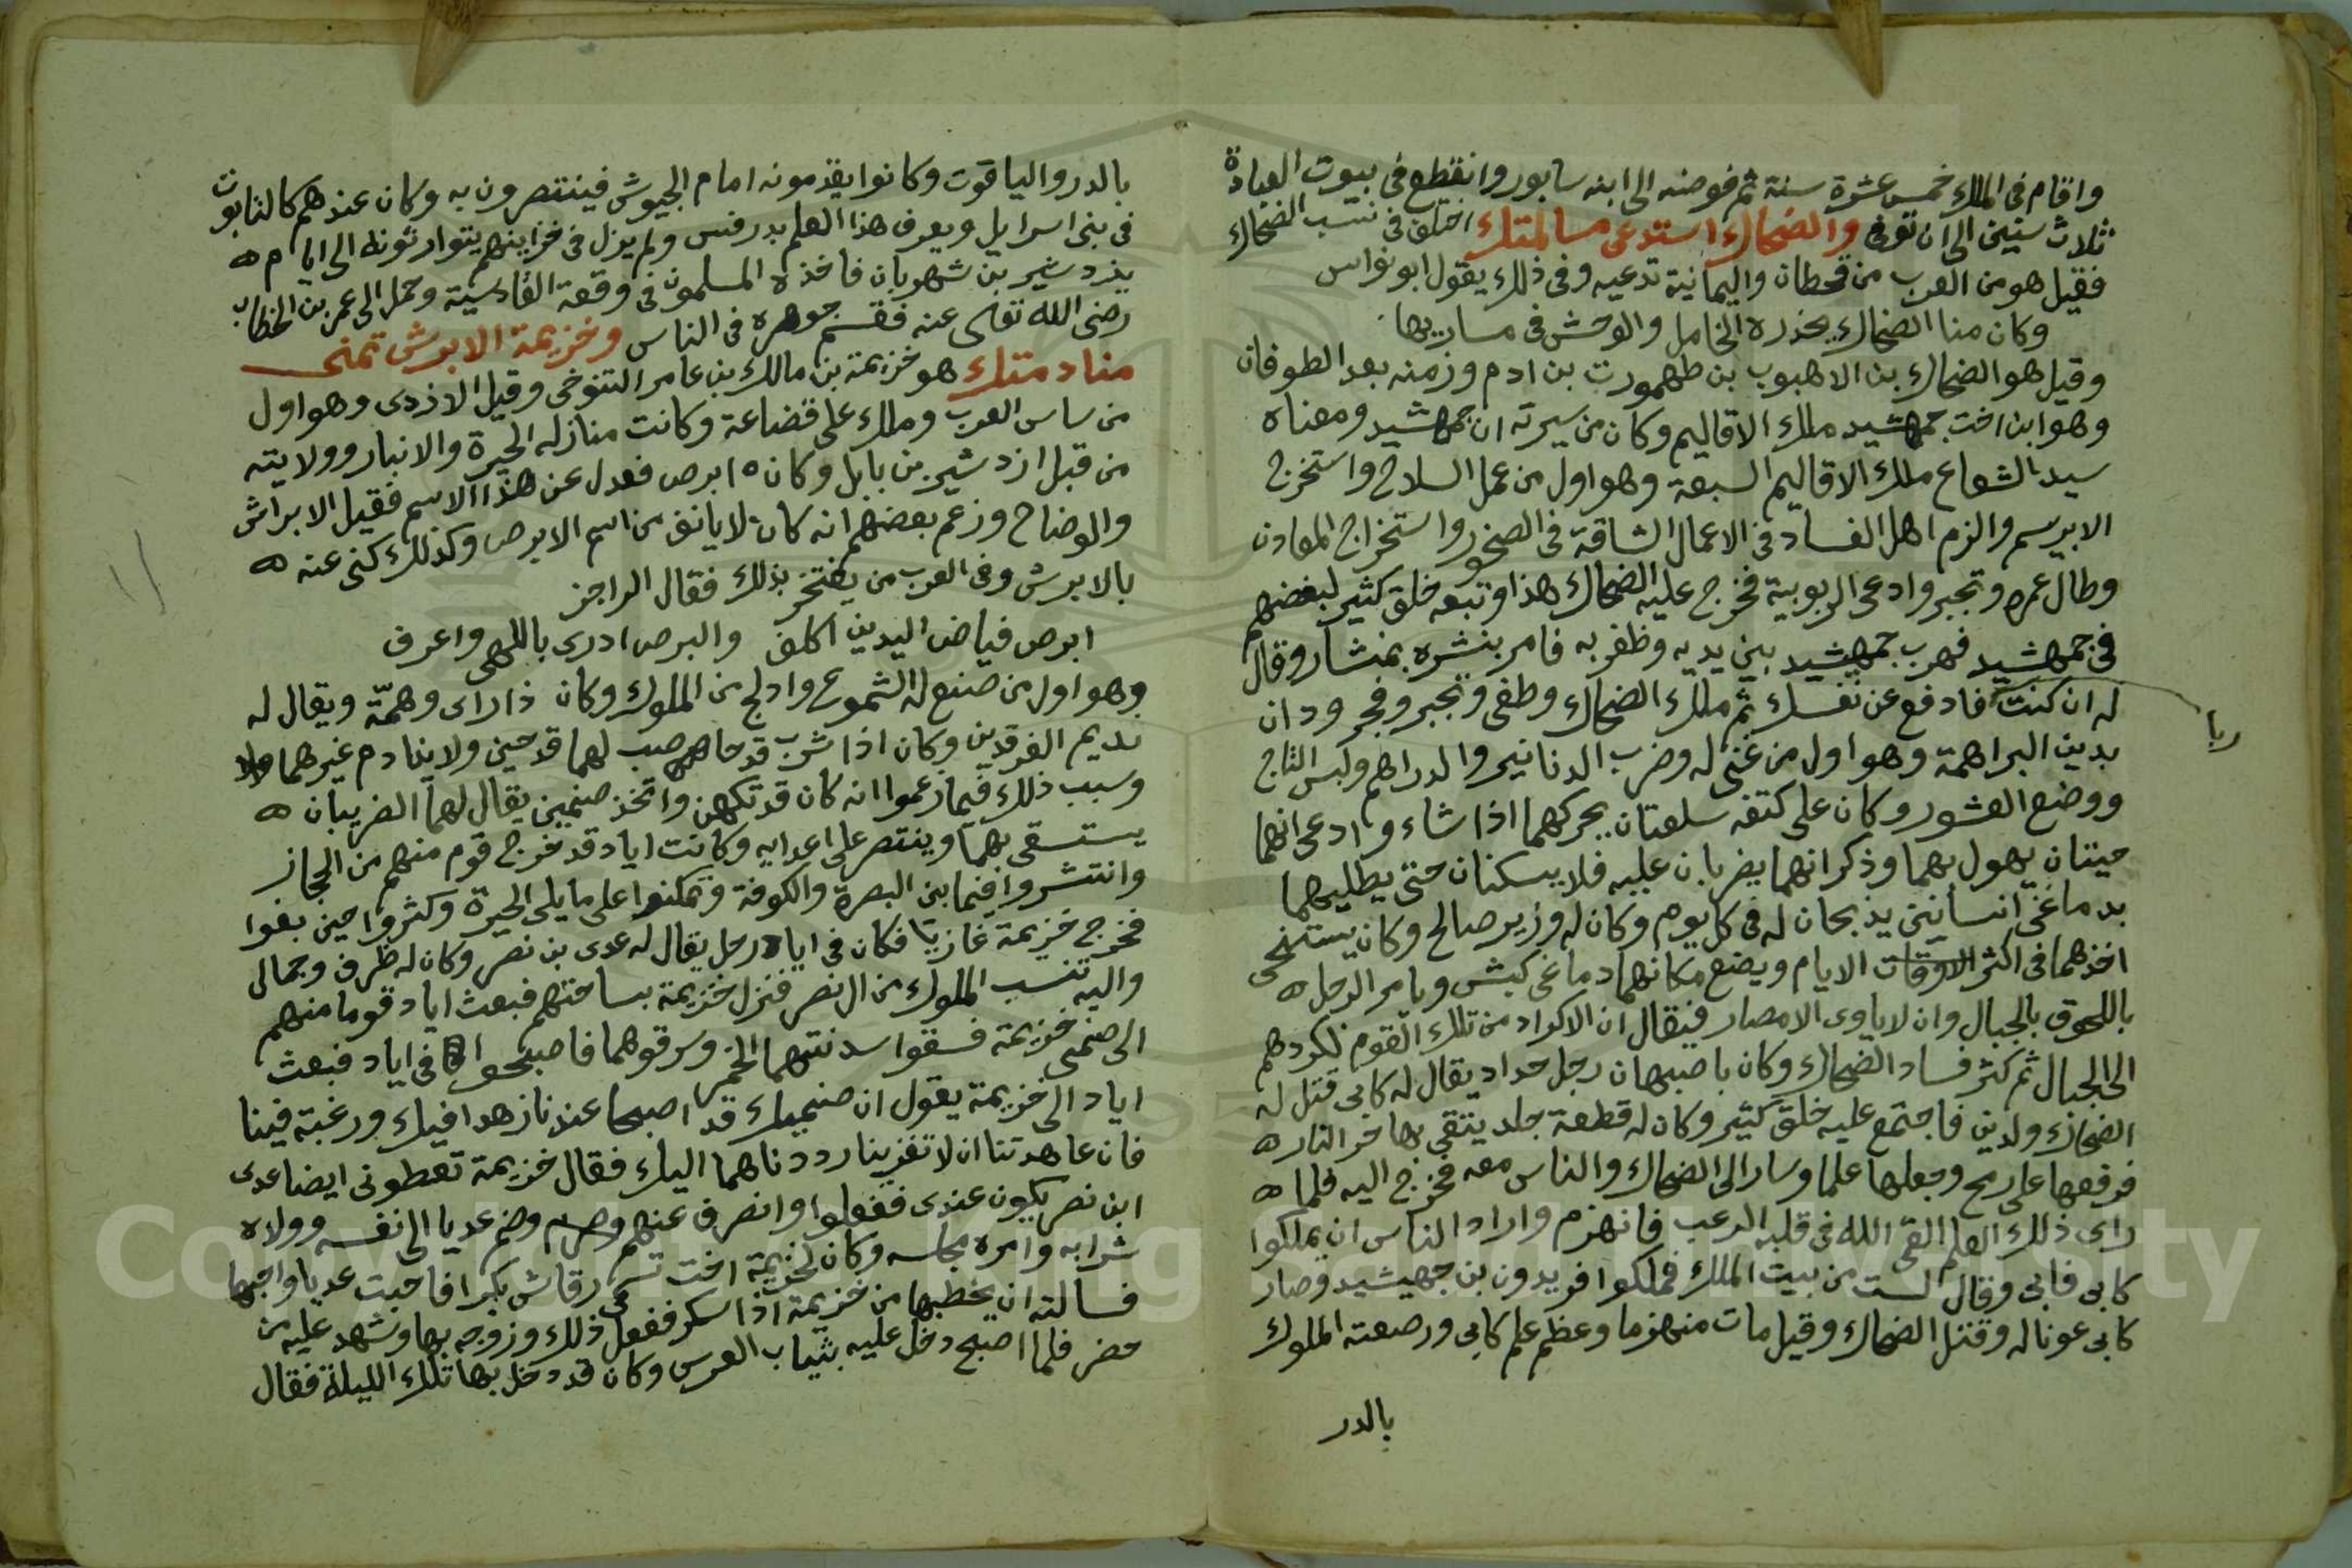 واقام فى الملك خمس عشرة سنة ثم فوضه الى ابنه سابور وانقطع فى بيوت العبادة
ثلاث سنين الى ان توفى والضحاك استدعى مسالمتك اختلف فى نسب الضحاك
فقيل هو من العرب من قحطان واليمانية تدعيه وفى ذلك يقول ابو نواس
وكان منا الضحاك يحذره الخامل والوحش فى مساربها
وقيل هو الضحاك بن الاهبوب بن طهمورث بن ادم وزمنه بعد الطوفان
وهو ابن اخت جمهشيد ملك الاقاليم وكان من سيرته ان جمهشيد ومعناه
سيد الشعاع ملك الاقاليم السبعة وهو اول من عمل السلاح واستخرج
الابريسم والزم اهل الفساد فى الاعمال الشاقة فى الصخور واستخراج المعادن
وطال عمره وتجبر وادعى الربوبية فخرج عليه الضحاك هذا وتبعه خلق كثير لبغضهم
فى جمهشيد فهرب جمهشيد بين يديه وظفر به فامر بنشره بمنشار وقال
له ان كنت فادفع عن نفسك ثم ملك الضحاك وطغى وتجبر وفجر ودان
ربا
بدين البراهمة وهو اول من غنى له وضرب الدنانير والدراهم ولبس التاج
ووضع العشور وكان على كتفه سلعتان يحركهما اذا شاء وادعى انهما
حيتان يهول بهما وذكر انهما يضربان عليه فلا يسكنان حتى يطليهما
بدماغى انسانين يذبحان له فى كل يوم وكان له وزير صالح وكان يستحى
اخذهما فى اكثر الاوقات الايام ويضع مكانهما دماغى كبش ويامر الرجل ه
باللحوق بالجبال وان لا ياوى الامصار فيقال ان الاكراد من تلك القوم لكردهم
الى الجبال ثم كثر فساد الضحاك وكان باصبهان رجل حداد يقال له كابى قتل له
الضحاك ولدين فاجتمع عليه خلق كثير وكان له قطعة جلد يتقى بها حر النار ه
فرفعها على رمح وجعلها علما وسار الى الضحاك والناس معه فخرج اليه فلما ه
راى ذلك العلم القى الله فى قلبه الرعب فانهزم واراد الناس ان يملكوا
كابى فابى وقال لست من بيت الملك فملكوا افريدون بن جمهيشيد وصار
كابى عونا له وقتل الضحاك وقيل مات منهزما وعظم علم كابى ورصعته الملوك
بالدر
بالدر والياقوت وكانوا يقدمونه امام الجيوش فينتصرون به وكان عندهم كالتابوت
فى بنى اسرايل ويعرف هذا العلم بدرفس ولم يزل فى خزاينهم يتوارثونه الى ايام ه
يزدشير بن شهربان فاخذه المسلمون فى وقعة القادسية وحمل الى عمر بن الخطاب
رضى الله تعالى عنه فقسم جوهره فى الناس وخزيمة الابرش تمنى
منادمتك هو خزيمة بن مالك بن عامر التنوخى وقيل الازدى وهو اول
من ساس العرب وملك على قضاعة وكانت منازله الحيرة والانبار وولايته
من قبل ازدشير بن بابل وكان ابرص فعدل عن هذا الاسم فقيل الابراش
والوضاح وزعم بعضهم انه كان لا يانف من اسم الابرص وكذلك كنى عنه ه
بالابرش وفى العرب من يفتخر بذلك فقال الراجز
ابرص فياض اليدين اكلف والبرص ادرى باللهى واعرف
وهو اول من صنع له الشموع وادلج من الملوك وكان ذا راى وهمّة ويقال له
نديم الفرقدين وكان اذا شرب قدحا صب لهما قدحين ولا ينادم غيرهما
وسبب ذلك فيما زعموا انه كان قد تكهن واتخذ صنمين يقال لهما الضريبان ه
يستسقى بهما وينتصر على اعدايه وكانت اياد قد خرج قوم منهم من الحجاز
وانتشروا فيما بين البصرة والكوفة وتمكنوا على ما يلى الحيرة وكثروا حين بغوا
فخرج خزيمة غازيا فكان فى اياد رجل يقال له عدى بن نصر وكان له ظرف وجمالى
واليه تنسب الملوك من ال نصر فنزل خزيمة بساحتهم فبعث اياد قوما منهم
الى صنمى خزيمة فسقوا سدنتهما الخمر وسرقوهما فاصبحوا فى اياد فبعث
اياد الى خزيمة يقول ان صنميك قد اصبحا عندنا زهدا فيك ورغبة فينا
فان عاهدتنا ان لا تغزينا رددناهما اليك فقال خزيمة تعطونى ايضا عدى
ابن نصر يكون عندى ففعلوا وانصرف عنهم وضم عديا الى نفسه وولاه
شرابه وامره مجلسه وكان لخزيمة اخت تسمى رقاش بكرا فاحبت عديا واحبها
فسالته ان يخطبها من خزيمة اذا سكر ففعل ذلك وزوجه بها وشهد عليه من
حضر فلما اصبح دخل عليه بثياب العرس وكان قد دخل بها تلك الليلة فقال